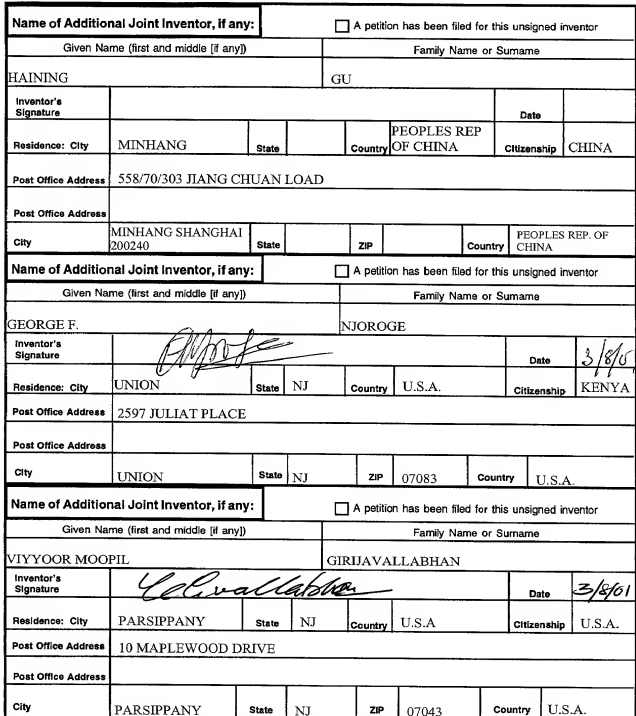 Name of Additional Joint Inventor, if any: A petition has been filed for this unsigned inventor
Given Name (first and middle [if any]) Family Name or Surname
HAINING GU
Inventor's Signature Date
Residence: City MINHANG State Country PEOPLES REP OF CHINA Citizenship CHINA
Post Office Address 558/70/303 JIANG CHUAN LOAD
Post Office Address
City MINHANG SHANGHAI 200240 State ZIP Country PEOPLES REP. OF CHINA
Name of Additional Joint Inventor, if any: A petition has been filed for this unsigned inventor
Given Name (first and middle [if any]) Family Name or Surname
GEORGE F. NJOROGE
Inventor's Signature Date
Residence: City UNION State NJ Country U.S.A. Citizenship KENYA
Post Office Address 2597 JULIAT PLACE
Post Office Address
City UNION State NJ ZIP 07083 Country U.S.A.
Name of Additional Joint Inventor, if any: A petition has been filed for this unsigned inventor
Given Name (first and middle [if any]) Family Name or Surname
VIYYOOR MOOPIL GIRIJAVALLABHAN
Inventor's Signature Date 3/8/01
Residence: City PARSIPPANY State NJ Country U.S.A Citizenship U.S.A.
Post Office Address 10 MAPLEWOOD DRIVE
Post Office Address
City PARSIPPANY State NJ ZIP 07043 Country U.S.A.